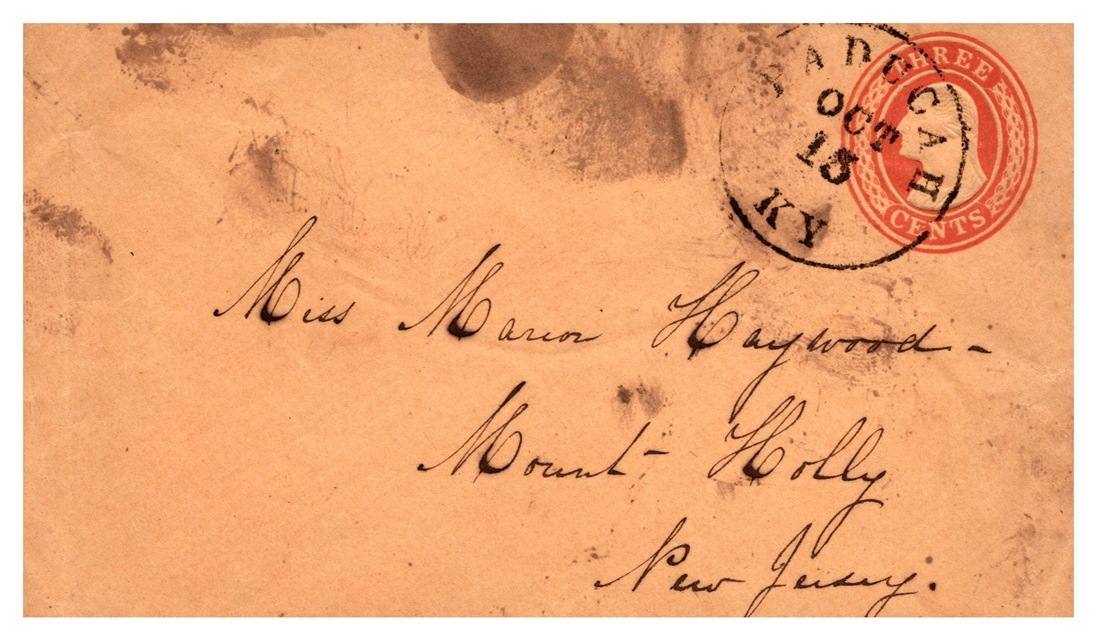 THREE
CENTS
PADUCAH
OCT
15
KY
Miss Marion Haywood -
Mount Holly
New Jersey.